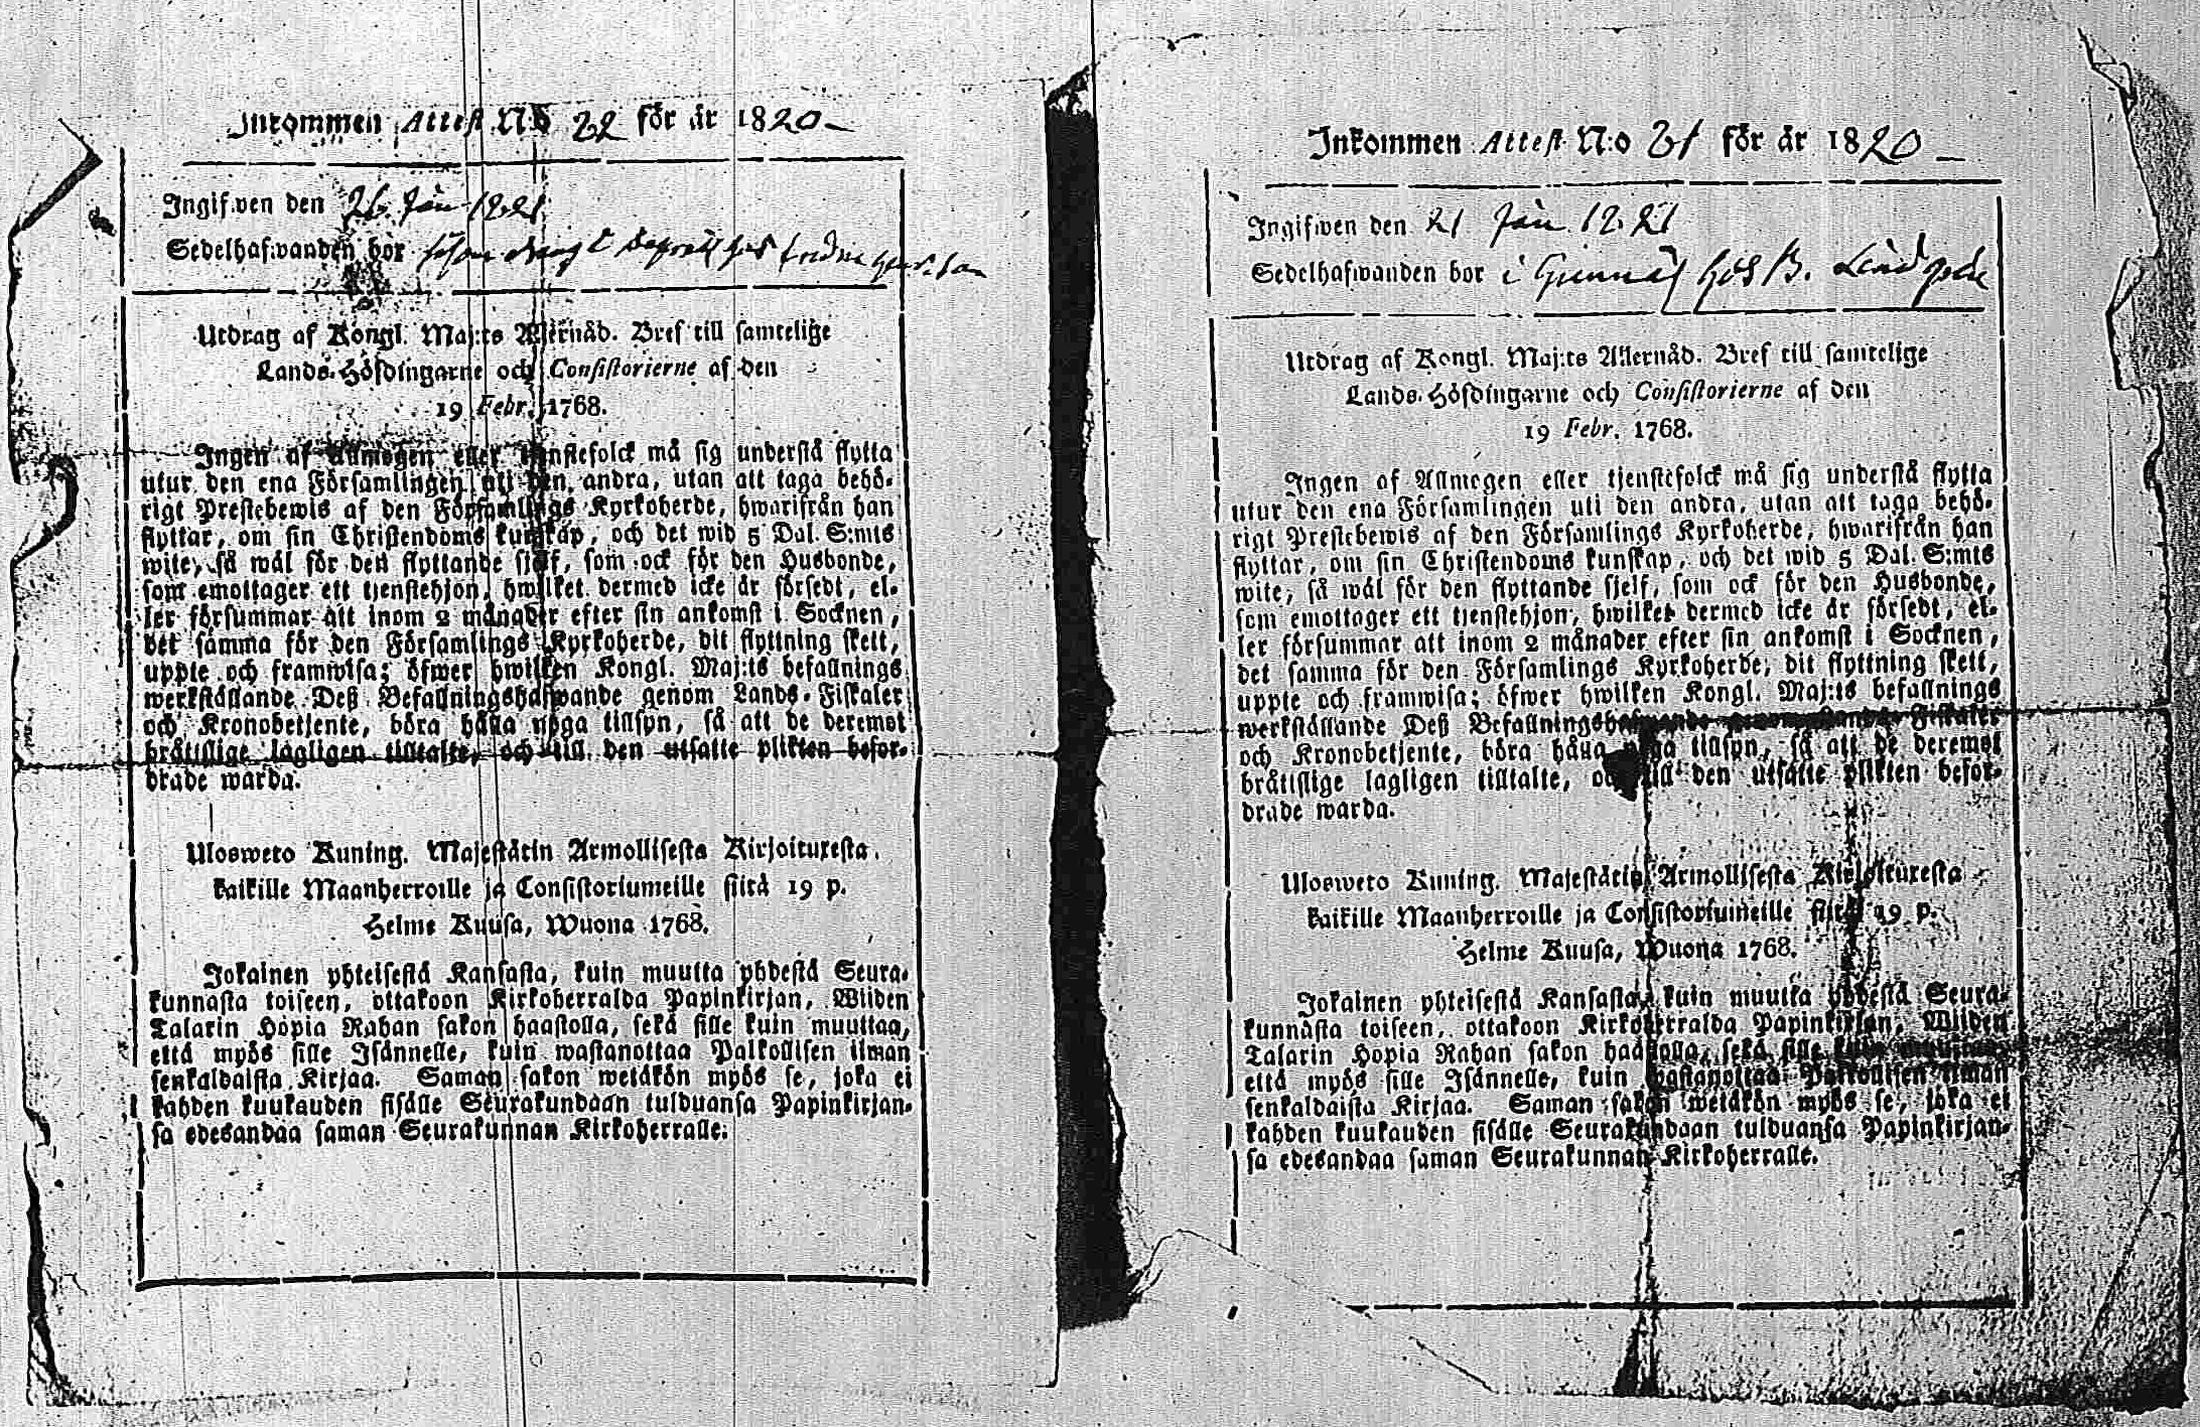 Inkommen Attest N:o 22 för år 1820
Ingifwen den 26 Jan 1821
Sedelhafwanden bor
Utdrag af Kongl. Maj:ts Allernåd. Bref till samtelige
Lands-Höfdingarne och Consistorierne af den
19 Febr. 1768.
Ingen af Allmogen eller tjenstefolck må sig understå flytta
utur den ena Församlingen uti den andra, utan att taga behö-
rigt Prestebewis af den Församlings Kyrkoherde, hwarifrån han
flyttar, om sin Christendoms kunskap, och det wid 5 Dal. S:mts
wite, så wäl för den flyttande sjelf, som ock för den Husbonde,
som emottager ett tjenstehjon, hwilket dermed icke är försedt, el-
ler försummar att inom 2 månader efter sin ankomst i Socknen,
det samma för den Församlings Kyrkoherde, dit flyttning skett,
uppte och framwisa; öfwer hwilken Kongl. Maj:ts befallnings
werkställande Deß Befallningshafwande genom Lands-Fiskaler
och Kronobetjente, böra hålla noga tillsyn, så att de deremot
bråtislige lagligen tilltalte, och till den utsatte plikten befor-
drade warda.
Ulosweto Kuning. Majestätin Armollisesta Kirjoituxesta
kaikille Maanherroille ja Consistoriumeille siitä 19 p.
Helme Kuusa, Wuona 1768.
Jokainen yhteisestä Kansasta, kuin muutta yhdestä Seura-
kunnasta toiseen, ottakoon Kirkoherralda Papinkirjan, Wiiden
Talarin Hopia Rahan sakon haastolla, sekä sille kuin muuttaa,
että myös sille Isännelle, kuin wastanottaa Palkollisen ilman
senkaldaista Kirjaa. Saman sakon wetäkön myös se, joka ei
kahden kuukauden sisälle Seurakundaan tulduansa Papinkirjan-
sa edesandaa saman Seurakunnan Kirkoherralle.
Inkommen Attest N:o 21 för år 1820
Ingifwen den 21 Jan 1821
Sedelhafwanden bor i Gunnäs hos B.
Utdrag af Kongl. Maj:ts Allernåd. Bref till samtelige
Lands-Höfdingarne och Consistorierne af den
19 Febr. 1768.
Ingen af Allmogen eller tjenstefolck må sig understå flytta
utur den ena Församlingen uti den andra, utan att taga behö-
rigt Prestebewis af den Församlings Kyrkoherde, hwarifrån han
flyttar, om sin Christendoms kunskap, och det wid 5 Dal. S:mts
wite, så wäl för den flyttande sjelf, som ock för den Husbonde,
som emottager ett tjenstehjon, hwilket dermed icke är försedt, el-
ler försummar att inom 2 månader efter sin ankomst i Socknen,
det samma för den Församlings Kyrkoherde, dit flyttning skett,
uppte och framwisa; öfwer hwilken Kongl. Maj:ts befallnings
werkställande Deß Befallningshafwande genom Lands-Fiskaler
och Kronobetjente, böra hålla noga tillsyn, så att de deremot
bråtislige lagligen tilltalte, och till den utsatte plikten befor-
drade warda.
Ulosweto Kuning. Majestätin Armollisesta Kirjoituxesta
kaikille Maanherroille ja Consistoriumeille siitä 19 p.
Helme Kuusa, Wuona 1768.
Jokainen yhteisestä Kansasta, kuin muutta yhdestä Seura-
kunnasta toiseen, ottakoon Kirkoherralda Papinkirjan, Wiiden
Talarin Hopia Rahan sakon haastolla, sekä sille kuin muuttaa,
että myös sille Isännelle, kuin wastanottaa Palkollisen ilman
senkaldaista Kirjaa. Saman sakon wetäkön myös se, joka ei
kahden kuukauden sisälle Seurakundaan tulduansa Papinkirjan-
sa edesandaa saman Seurakunnan Kirkoherralle.